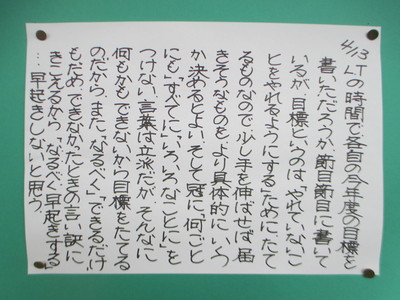 4/13 LTの時間で各自の今年度の目標を
書いただろうが、節目節目に書いて
いるが、目標というのは「やれていないこ
とをやれるようにする」ためにたて
るものなので、少し手を伸ばせば届
きそうなものを、より具体的に、いく
か決めるとよい。そして冠に「何ごと
にも」「すべてに」「いろいろなことに」を
つけない。言葉は立派だが、そんなに
何もかもできないから目標をたてる
のだから。また、「なるべく」「できるだけ」
もだめ。できなかったときの言い訳に
きこえるから。「なるべく早起きする」
…早起きしないと思う。